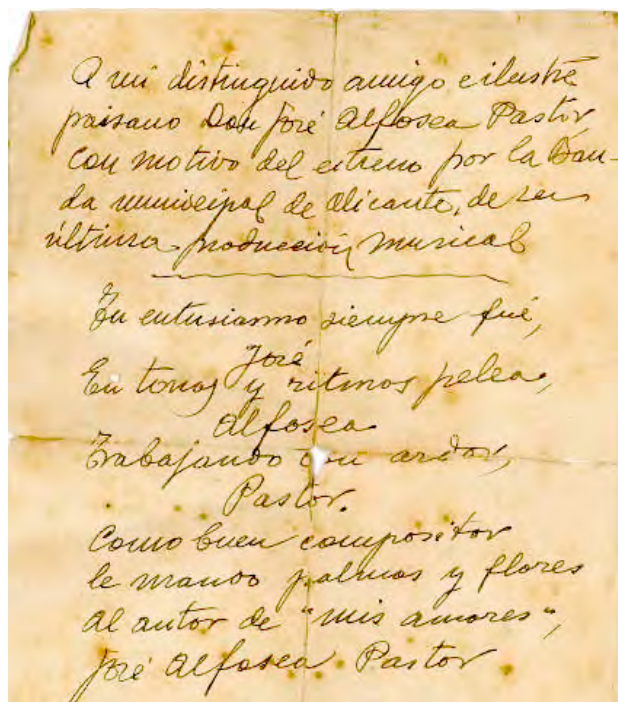 A mi distinguido amigo e ilustre
paisano Don José Alfosea Pastor
con motivo del estreno por la Ban-
da municipal de Alicante, de su
última producción musical
Tu entusiasmo siempre fué,
José
En tonos y ritmos pelea,
Alfosea
Trabajando con ardor,
Pastor.
Como buen compositor
le mando palmas y flores
al autor de "mis amores",
José Alfosea Pastor